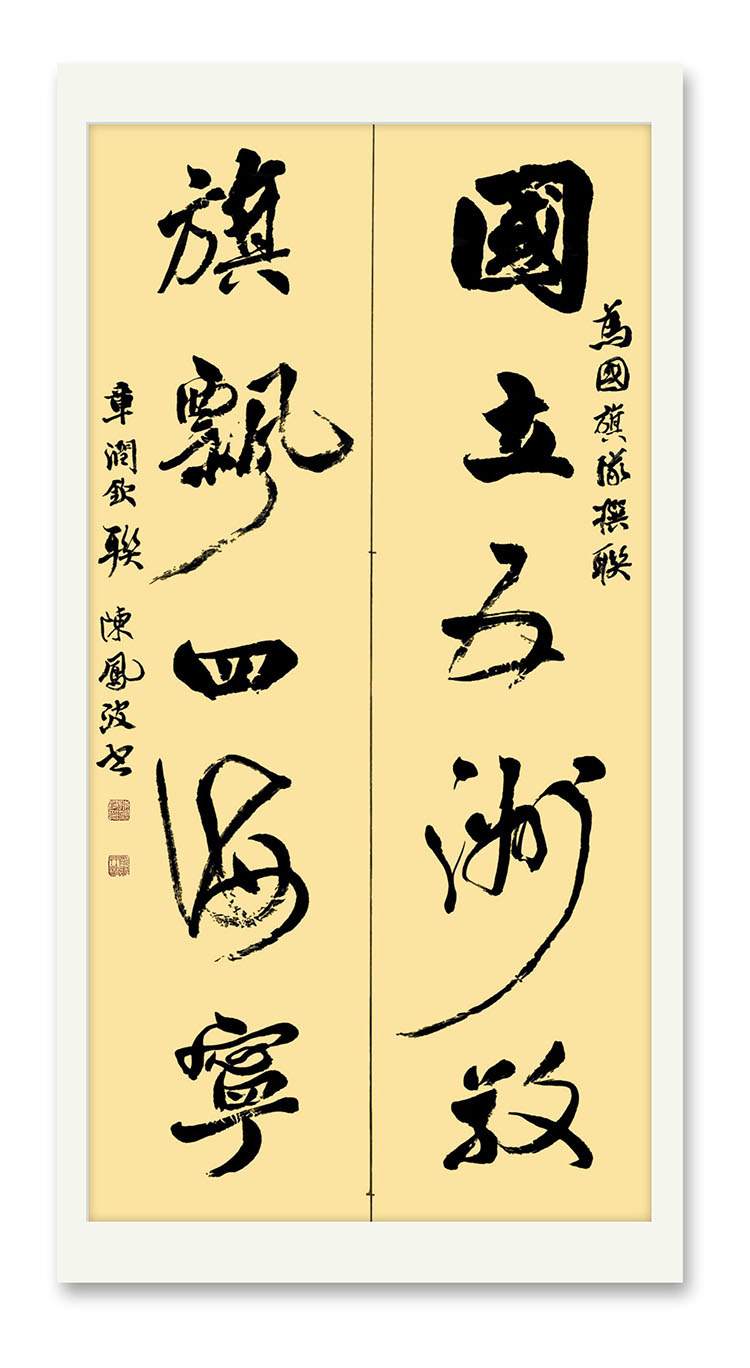 為國旗隊撰聯
國立五洲敬
旗飄四海寧
章潤欽聯 陳鳳波书